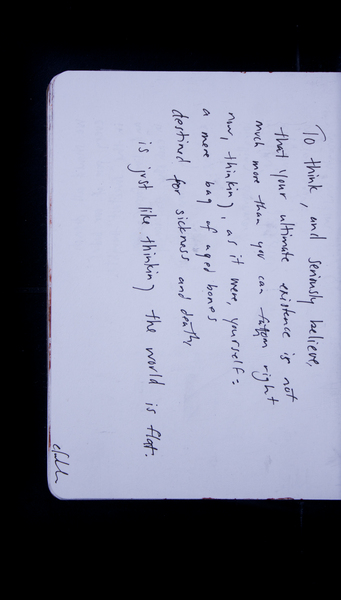 To think, and seriously believe,
that your ultimate existence is not
much more than you can fathom right
now, thinking, as it were, yourself:
a mere bag of aged bones
destined for sickness and death,
is just like thinking the world is flat.